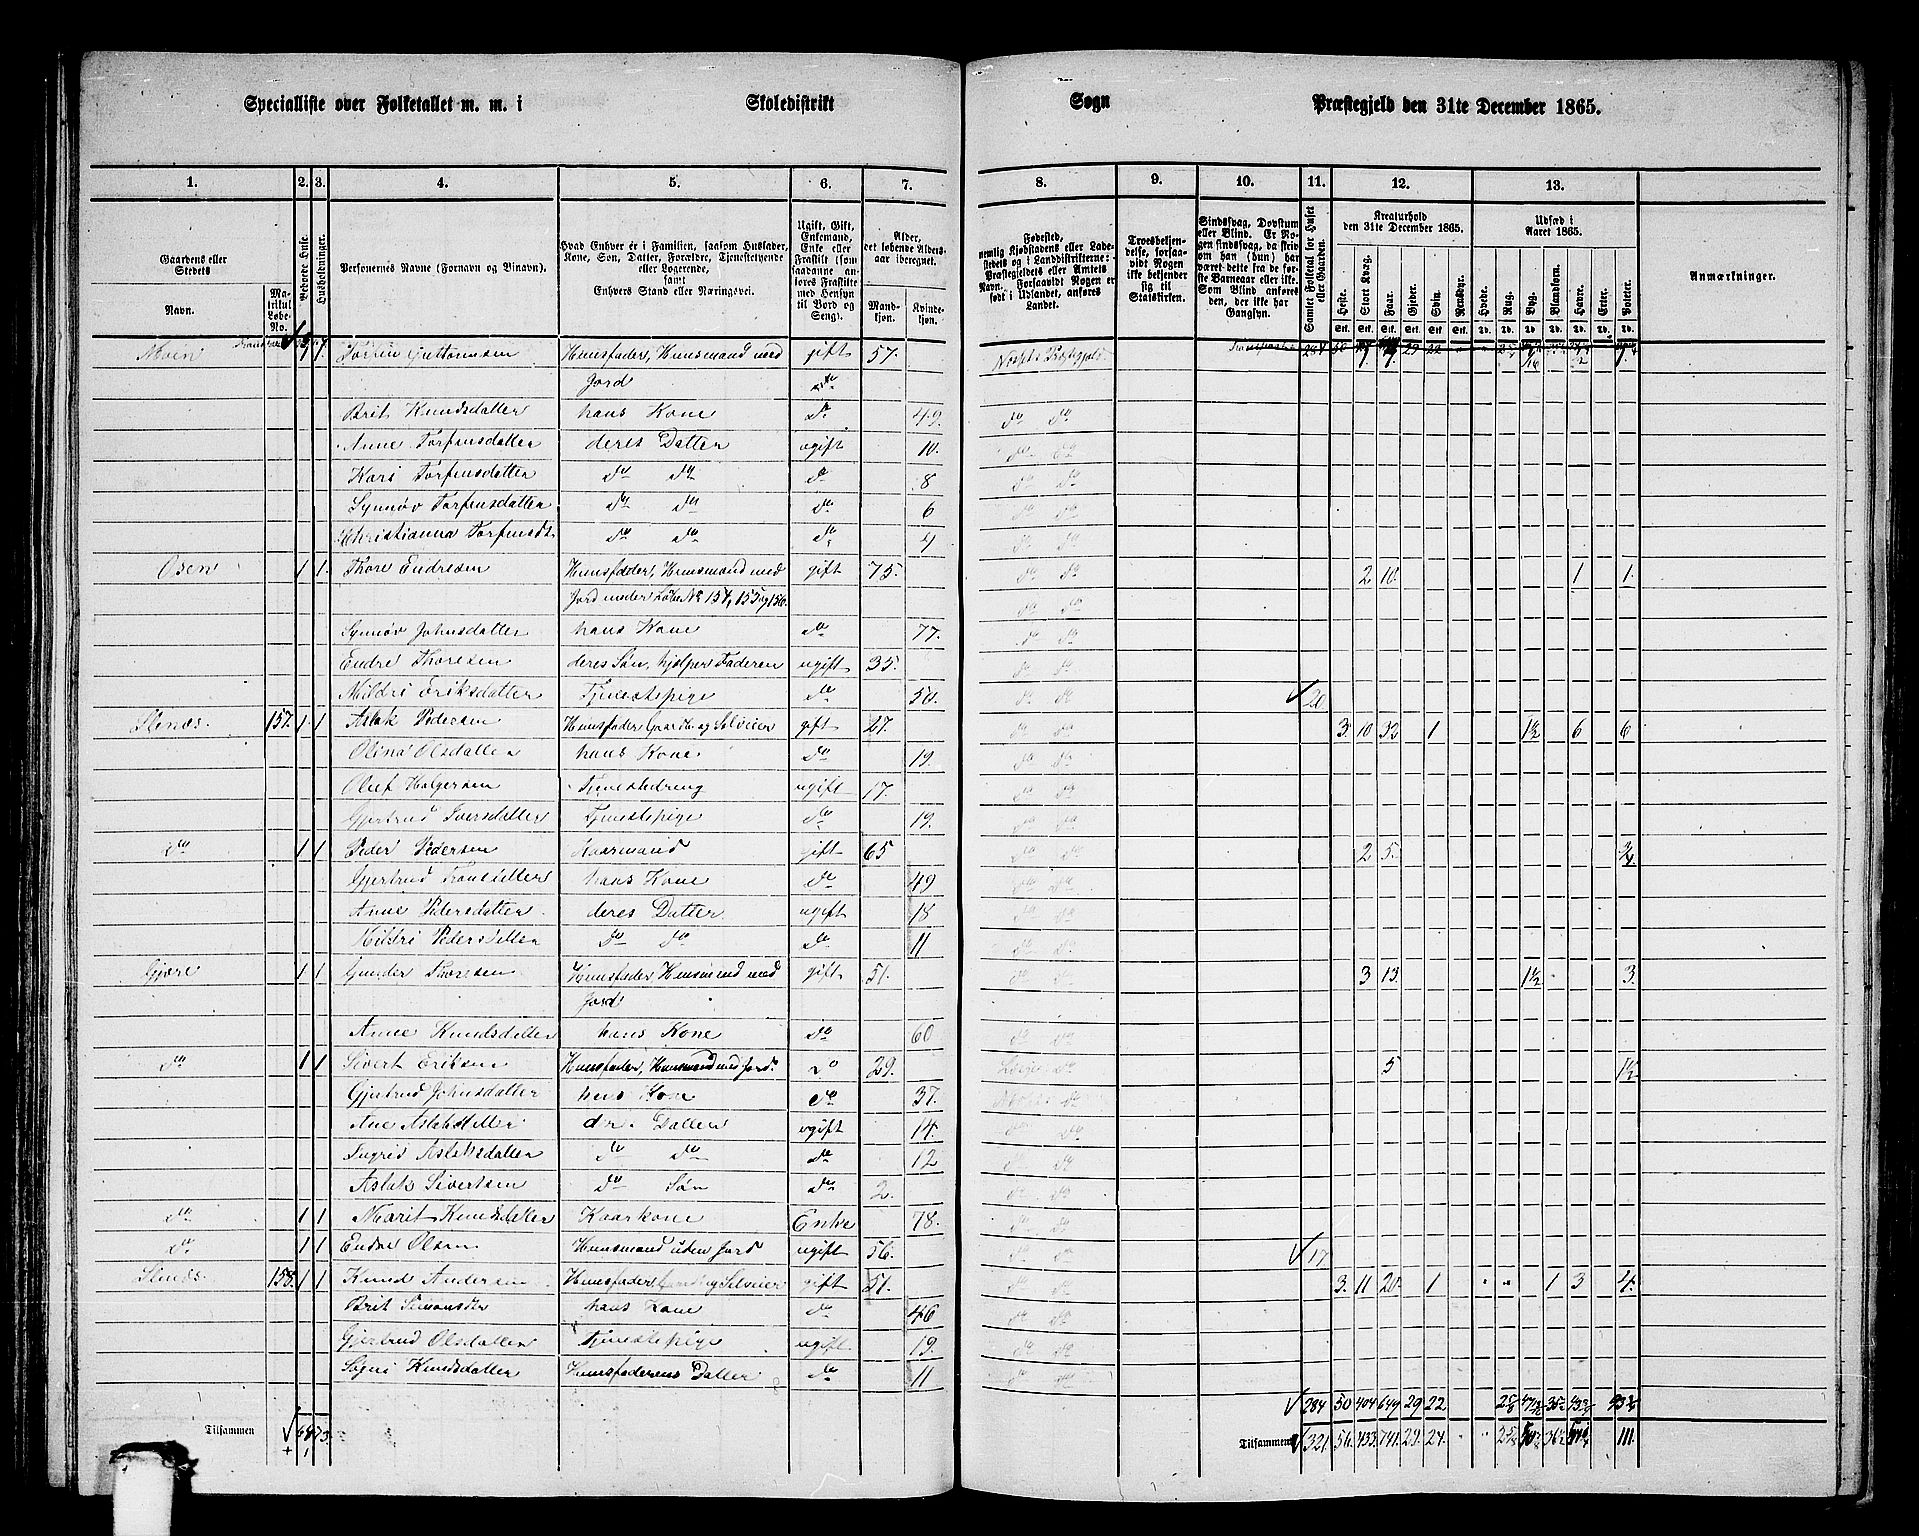 Specialliste over Folketallet m. m. i Skoledistrikt Sogn Præstegjeld den 31te December 1865.
1. 2. 3. 4. 5. 6. 7. 8. 9. 10. 11. 12. 13.
Gaardens eller Stedets
Navn.
Matrikul Løbe-No.
Beboede Huse.
Husholdninger.
Personernes Navne (Fornavn og Binavn).
Hvad Enhver er i Familien, saasom Husfader, Kone, Søn, Datter, Forældre, Tjenestetyende eller Logerende, samt Enhvers Stand eller Næringsvei.
Ugift, Gift, Enkemand, Enke eller Fraskilt (som saadanne anføres Fraskilte med Hensyn til Bord og Seng).
Alder, det løbende Aldersaar iberegnet.
Mandkjøn.
Kvindekjøn.
Fødested, nemlig Kjøbstadens eller Ladestedets eller i Landdistrikterne: Præstegjeldets eller Amtets Navn. Forsaavidt Nogen er født i Udlandet, anføres Landet.
Troesbekjendelse, forsaavidt Nogen ikke bekjender sig til Statskirken.
Sindssvag, Døvstum eller Blind. Er Nogen sindssvag, da skriv om han (hun) har været dette fra de første Barneaar eller ikke. Som Blind anføres den, der ikke har Gangsyn.
Samlet Folketal for Huset eller Gaarden.
Kreaturhold den 31te December 1865.
Heste. Stort Kvæg. Faar. Gjeder. Sviin. Rensdyr.
Udsæd i Aaret 1865.
Hvede. Rug. Byg. Blandkorn. Havre. Erter. Poteter.
Anmærkninger.
Torfin Guttormsen Huusfader, Huusmand med gift 57.
Jord do
Brit Knudsdatter hans Kone do 49. do do
Anne Torfinsdatter deres Datter ugift 10.
Kari Torfinsdatter do do do 8 do do
Synnøv Torfinsdatter do do do 6 do do
Christianna Torfinsdt do do do 4 do do
Osen 1 1. Thore Endresen Huusfader, Huusmand med gift 75. do do 2 10. 1 1.
Jord under Løbe No 154, 155 og 156. do do
Synnøv Johnsdatter hans Kone do 77. do do
Endre Thoresen deres Søn, hjelper Faderen ugift 35. do do
Mildri Eriksdatter Tjenestepige do 50. do do 20
157. 1 1 Aslak Pedersen Huusfader Gaardb og Selveier gift 27. do do 3. 10 32 1 1½ 6 6
Olina Olsdatter hans Kone do 19. do do
Oluf Holgersen Tjenestedreng ugift 17. do do
Gjertrud Iversdatter Tjenestepige do 19. do do
do 1 1 Peder Pedersen Kaarmand gift 65 do do 2 5. ¾
Gjertrud hans Kone do 49 do do
Anne Pedersdatter deres Datter ugift 18 do do
Mildri Pedersdatter do do do 11 do do
Gjøre 1 1 Gunder Thoresen Huusfader, Huusmand med gift 51. do do 3 13. 1½ 3.
Jord
Anne Knudsdatter hans Kone do 60 do do
do 1 1 Sivert Eriksen Huusfader, Huusmand med Jord. do 29. do 5 1½
Gjertrud Johnsdatter hans Kone do 37. do
Ane Aslaksdatter Datter ugift 14. do do
Ingrid Aslaksdatter do do do 12 do do
Aslak Sivertsen do Søn do 2. do do
do 1 1 Marit Knudsdatter Kaarkone Enke 78. do do
do 1 1 Endre Olsen Huusmand uden Jord ugift 56. do do 17
158. 1 1 Knud Andersen Huusfader, Gaardb og Selveier gift 51. do do 3. 11 20. 1 1 3 4.
Brit Simonsdtr hans Kone do 46 do do
Gjertrud Olsdatter Tjenestepige ugift. 19. do do
Sogni Knudsdatter Huusfaderens Datter do 11 do do
284 50 404 649 29 22
Tilsammen 73. Tilsammen 321. 56. 433. 741. 29. 24. 111.